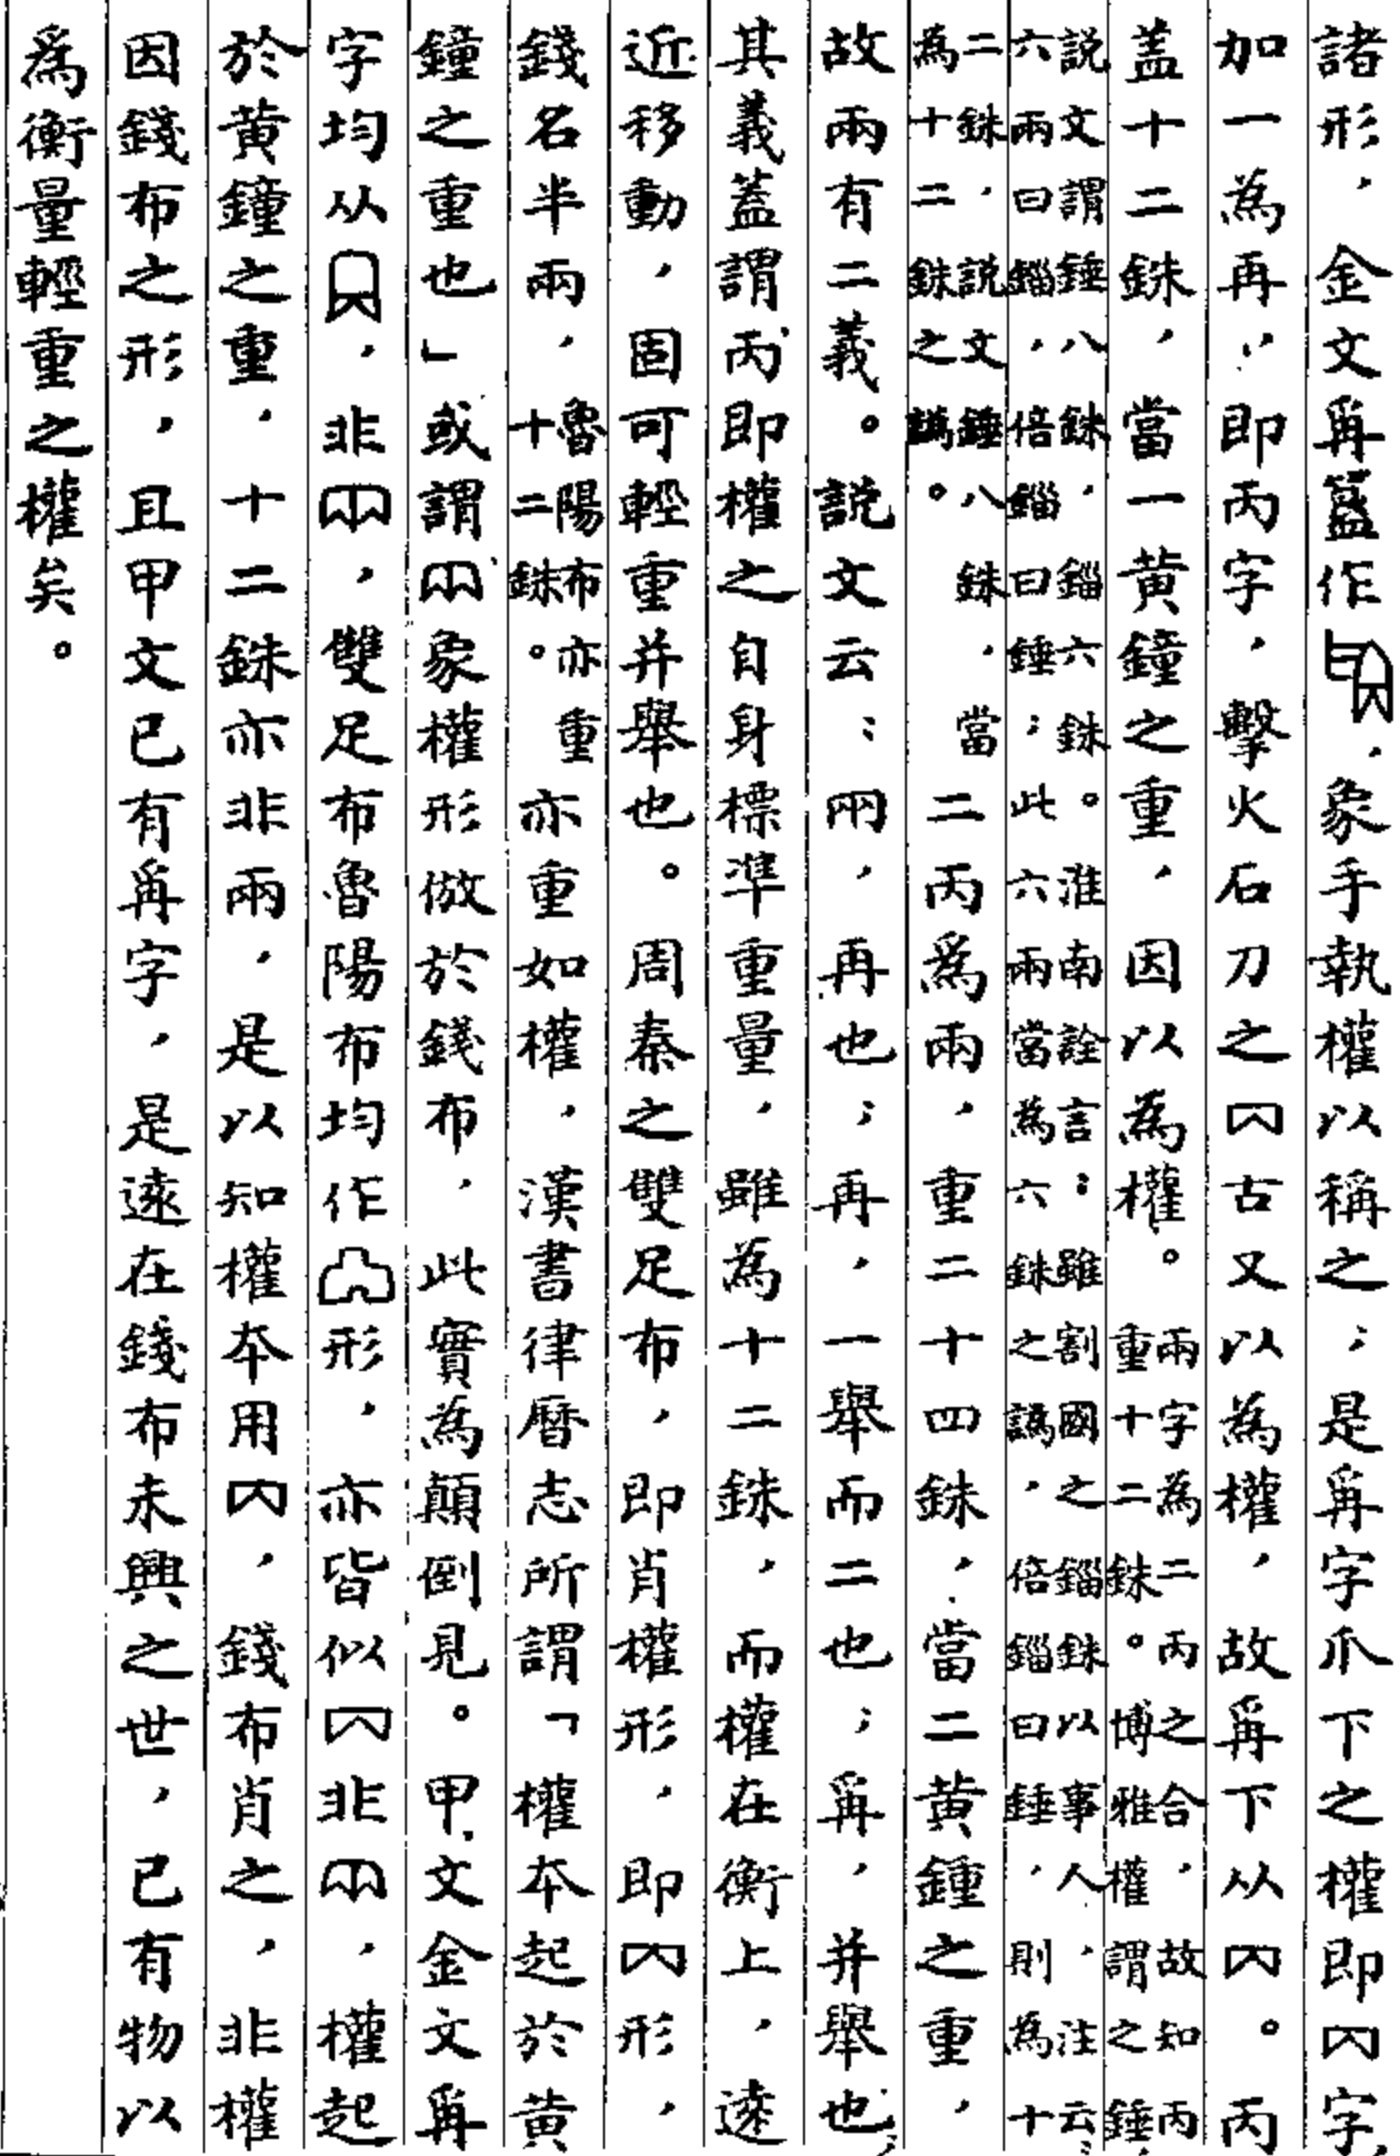 諸形，金文爯簋作，象手執權以稱之；是爯字爪下之權即字，
加一為再，即丙字，擊火石刀之古又以為權，故爯下从。丙
盖十二銖，當一黃鐘之重，因以為權。兩字為二丙之合，故知丙
重十二銖。博雅權謂之錘，
説文謂錘八銖，錙六銖。淮南詮言：雖割國之錙銖以事人，注云：
六兩曰錙，倍錙曰錘；此六兩當為六銖之譌，倍錙曰錘，則為十
二銖，説文錘八銖，當
為十二銖之譌。二丙爲兩，重二十四銖，當二黃鍾之重，
故兩有二義。説文云：㒳，再也；再，一舉而二也；爯，并舉也；
其義蓋謂丙即權之自身標準重量，雖為十二銖，而權在衡上，遠
近移動，固可輕重并舉也。周秦之雙足布，即肖權形，即形，
錢名半兩，魯陽布亦重
十二銖。亦重如權，漢書律曆志所謂「權本起於黃
鐘之重也」或謂象權形倣於錢布，此實為顛倒見。甲文金文爯
字均从，非，雙足布魯陽布均作形，亦皆似非，權起
於黃鐘之重，十二銖亦非兩，是以知權本用，錢布肖之，非權
因錢布之形，且甲文已有爯字，是遠在錢布未興之世，已有物以
爲衡量輕重之權矣。